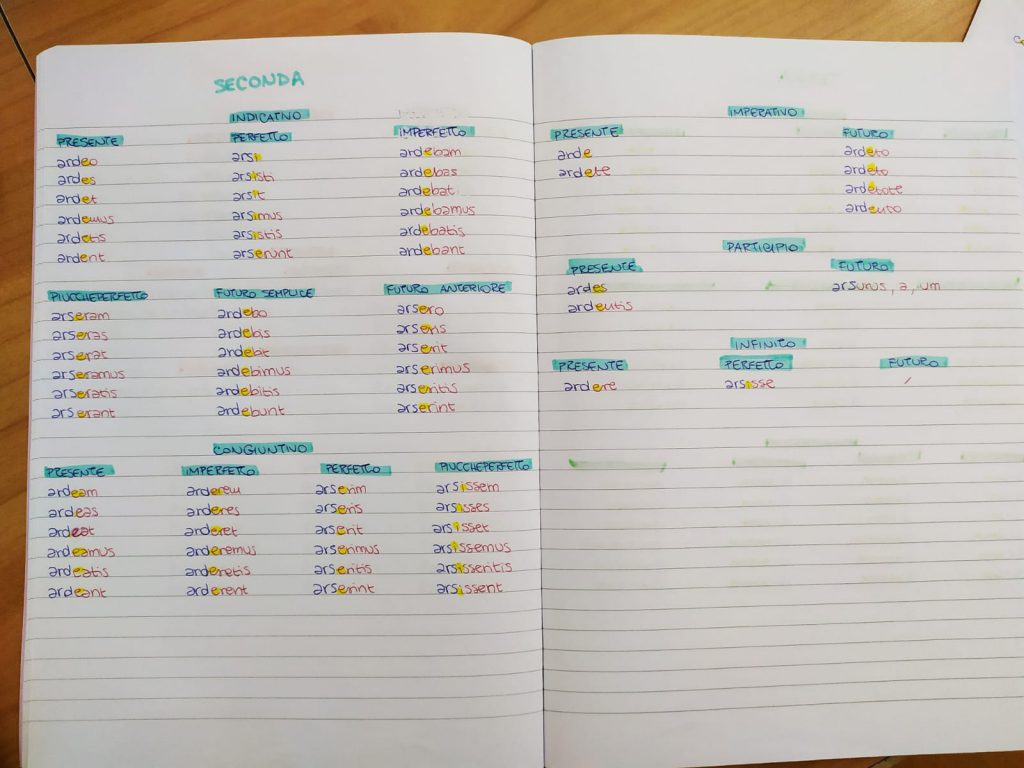 SECONDA
INDICATIVO
PRESENTE PERFETTO IMPERFETTO
ardeo arsi ardebam
ardes arsisti ardebas
ardet arsit ardebat
ardemus arsimus ardebamus
ardetis arsistis ardebatis
ardent arserunt ardebant
PIUCCHEPERFETTO FUTURO SEMPLICE FUTURO ANTERIORE
arseram ardebo arsero
arseras ardebis arseris
arserat ardebit arserit
arseramus ardebimus arserimus
arseratis ardebitis arseritis
arserant ardebunt arserint
CONGIUNTIVO
PRESENTE IMPERFETTO PERFETTO PIUCCHEPERFETTO
ardeam arderem arserim arsissem
ardeas arderes arseris arsisses
ardeat arderet arserit arsisset
ardeamus arderemus arserimus arsissemus
ardeatis arderetis arseritis arsisseritis
ardeant arderent arserint arsissent
IMPERATIVO
PRESENTE FUTURO
arde ardeto
ardete ardeto
ardetote
ardento
PARTICIPIO
PRESENTE FUTURO
ardes arsurus, a, um
ardentis
INFINITO
PRESENTE PERFETTO FUTURO
ardere arsisse /